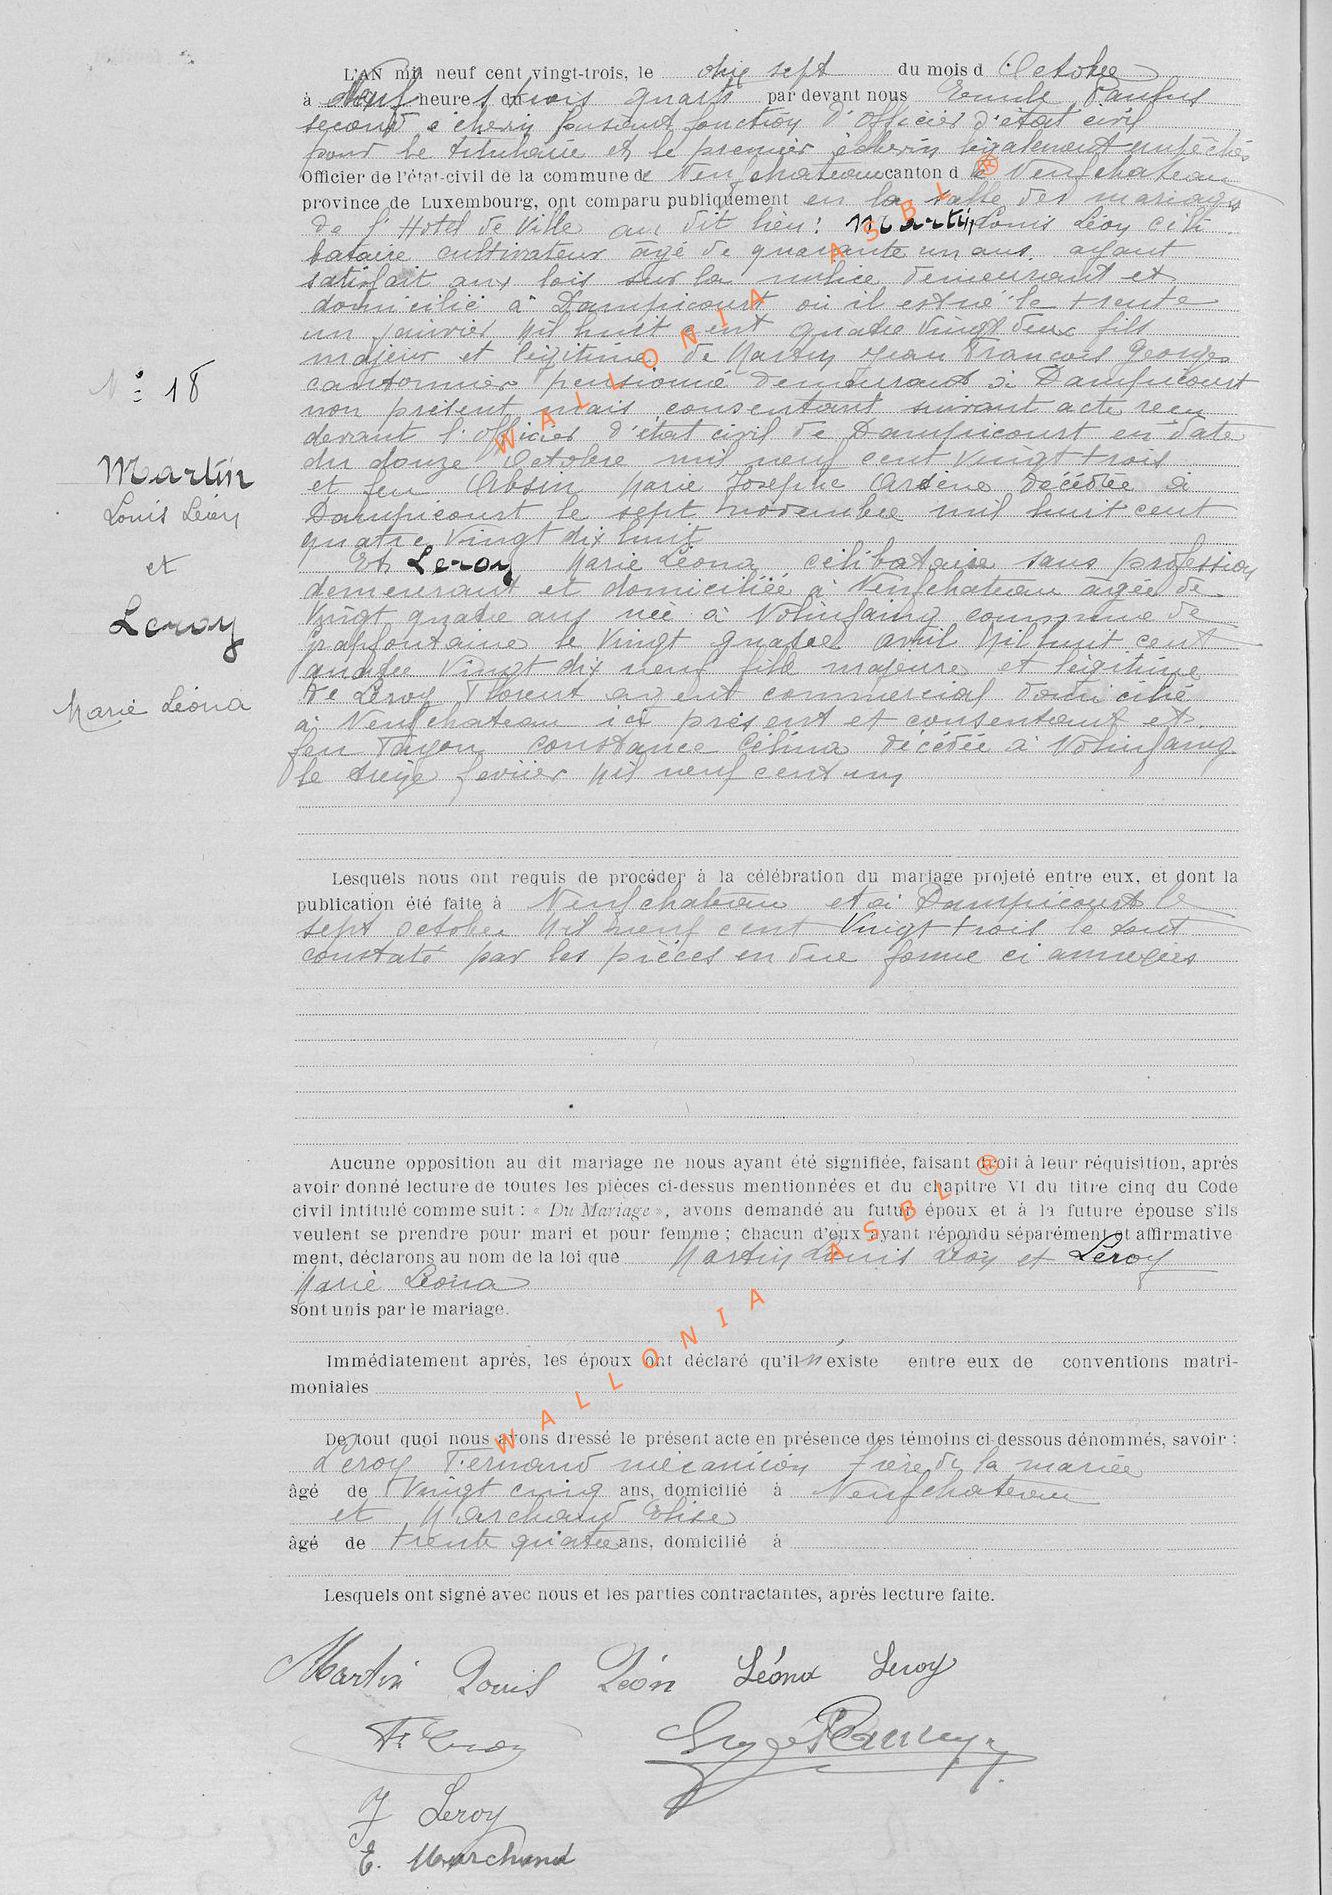 L'AN mil neuf cent vingt-trois, le dix sept du mois d'Octobre
à Neuf heures trois quarts par devant nous Emile
second échevin faisant fonction d'officier d'état civil
pour le titulaire et le premier échevin légalement empêchés
Officier de l'état-civil de la commune de Neufchateau canton de Neufchateau
province de Luxembourg, ont comparu publiquement en la salle des mariages
de l'Hotel de Ville au dit lieu: Martin Louis Léon céli
bataire cultivateur âgé de quarante un ans, ayant
satisfait aux lois sur la milice demeurant et
domicilié à Dampicourt où il est né le trente
un janvier Mil huit cent quatre vingt deux fils
majeur et légitime de Martin Jean François Georges
cantonnier pensionné demeurant à Dampicourt
non présent mais consentant suivant acte reçu
devant l'officier d'état civil de Dampicourt en date
du douze Octobre mil neuf cent vingt trois
et feu Absin Marie Josephe Arsène décédée à
Dampicourt le sept novembre mil huit cent
quatre vingt dix huit
Et Leroy Marie Léona célibataire sans profession
demeurant et domiciliée à Neufchateau âgée de
Vingt quatre ans née à Volaiville commune de
le Vingt quatre avril Mil huit cent
quatre Vingt dix neuf fille majeure et légitime
de Leroy Florent agent commercial domicilié
à Neufchateau ici présent et consentant et
feu Constance Célina décédée à
le treize fevrier Mil neuf cent un
N° 18
Martin
Louis Léon
et
Leroy
Marie Léona
Lesquels nous ont requis de procéder à la célébration du mariage projeté entre eux, et dont la
publication été faite à Neufchateau et à Dampicourt le
sept Octobre Mil neuf cent Vingt trois le tout
constaté par les pièces en due forme ci annexées
Aucune opposition au dit mariage ne nous ayant été signifiée, faisant droit à leur réquisition, après
avoir donné lecture de toutes les pièces ci-dessus mentionnées et du chapitre VI du titre cinq du Code
civil intitulé comme suit : « Du Mariage », avons demandé au futur époux et à la future épouse s'ils
veulent se prendre pour mari et pour femme ; chacun d'eux ayant répondu séparément et affirmative
ment, déclarons au nom de la loi que Martin Louis Léon et Leroy
Marie Léona
sont unis par le mariage.
Immédiatement après, les époux ont déclaré qu'il n'existe entre eux de conventions matri-
moniales
De tout quoi nous avons dressé le présent acte en présence des témoins ci-dessous dénommés, savoir :
Leroy Fernand mécanicien frère de la mariée
âgé de Vingt cinq ans, domicilié à Neufchateau
et Marchand Elise
âgé de trente quatre ans, domicilié à
Lesquels ont signé avec nous et les parties contractantes, après lecture faite.
Martin Louis Léon Léona Leroy
F. Leroy
F Leroy
E. Marchand
WALLONIA ASBL ®
WALLONIA ASBL ®